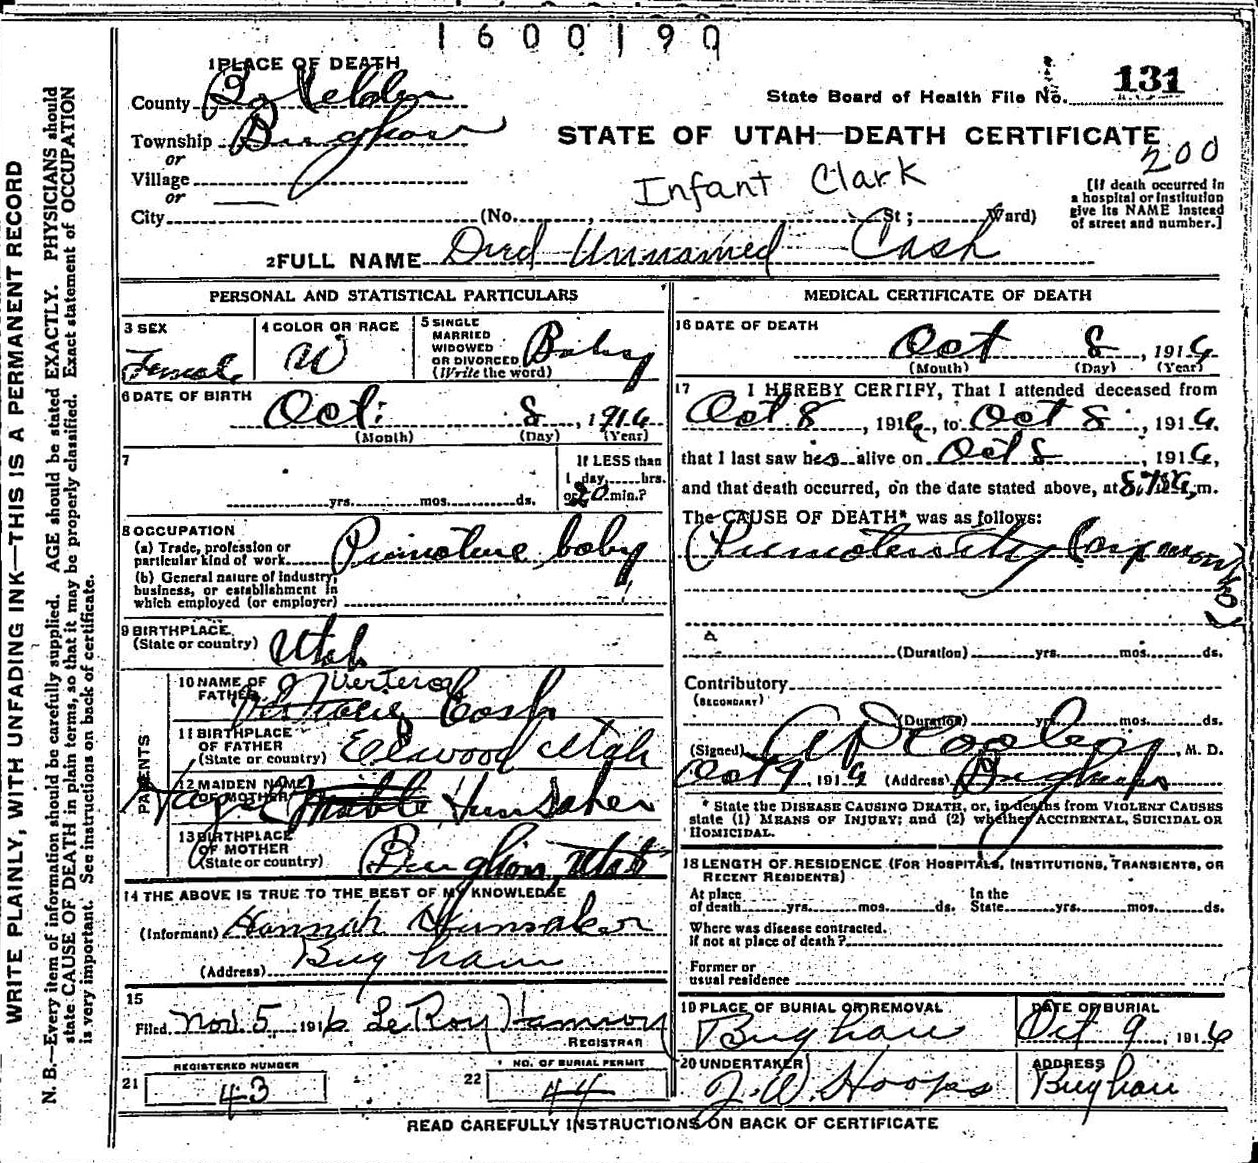 1600190
1 PLACE OF DEATH
County
131
State Board of Health File No.
Township
STATE OF UTAH—DEATH CERTIFICATE
200
or
Village
or
Infant Clark
[If death occurred in
a hospital or institution
give its NAME instead
of street and number.]
City (No. , St; Ward)
2 FULL NAME Died Unnamed Cash
PERSONAL AND STATISTICAL PARTICULARS
3 SEX
Female
4 COLOR OR RACE
W
5 SINGLE
MARRIED
WIDOWED
OR DIVORCED
(Write the word)
Baby
6 DATE OF BIRTH
Oct. 8, 1916
(Month) (Day) (Year)
7
yrs. mos. ds.
If LESS than
1 day, hrs.
or 20 min.?
8 OCCUPATION
(a) Trade, profession or
particular kind of work
Premature baby
(b) General nature of industry,
business, or establishment in
which employed (or employer)
9 BIRTHPLACE
(State or country)
Utah
PARENTS
10 NAME OF
FATHER
Cash
11 BIRTHPLACE
OF FATHER
(State or country)
Elwood Utah
12 MAIDEN NAME
OF MOTHER
Hunsaker
13 BIRTHPLACE
OF MOTHER
(State or country)
Utah
14 THE ABOVE IS TRUE TO THE BEST OF MY KNOWLEDGE
(Informant) Hannah Hunsaker
(Address)
15
Filed Nov. 5, 1916 LeRoy
REGISTRAR
REGISTERED NUMBER
21 43
NO. OF BURIAL PERMIT
22 44
MEDICAL CERTIFICATE OF DEATH
16 DATE OF DEATH
Oct 8, 1916
(Month) (Day) (Year)
17 I HEREBY CERTIFY, That I attended deceased from
Oct 8, 1916, to Oct 8, 1916,
that I last saw h alive on Oct 8, 1916,
and that death occurred, on the date stated above, at m.
The CAUSE OF DEATH* was as follows:
(Duration) yrs. mos. ds.
Contributory
(SECONDARY)
(Duration) yrs. mos. ds.
(Signed) , M. D.
Oct 9 1916 (Address)
* State the DISEASE CAUSING DEATH, or, in deaths from VIOLENT CAUSES
state (1) MEANS OF INJURY; and (2) whether ACCIDENTAL, SUICIDAL OR
HOMICIDAL.
18 LENGTH OF RESIDENCE (FOR HOSPITALS, INSTITUTIONS, TRANSIENTS, OR
RECENT RESIDENTS)
At place
of death yrs. mos. ds.
In the
State yrs. mos. ds.
Where was disease contracted.
If not at place of death?
Former or
usual residence
19 PLACE OF BURIAL OR REMOVAL
DATE OF BURIAL
Oct 9, 1916
20 UNDERTAKER
J. W. Hoops
ADDRESS
READ CAREFULLY INSTRUCTIONS ON BACK OF CERTIFICATE
WRITE PLAINLY, WITH UNFADING INK—THIS IS A PERMANENT RECORD
N. B.—Every item of information should be carefully supplied. AGE should be stated EXACTLY. PHYSICIANS should
state CAUSE OF DEATH in plain terms, so that it may be properly classified. Exact statement of OCCUPATION
is very important. See instructions on back of certificate.